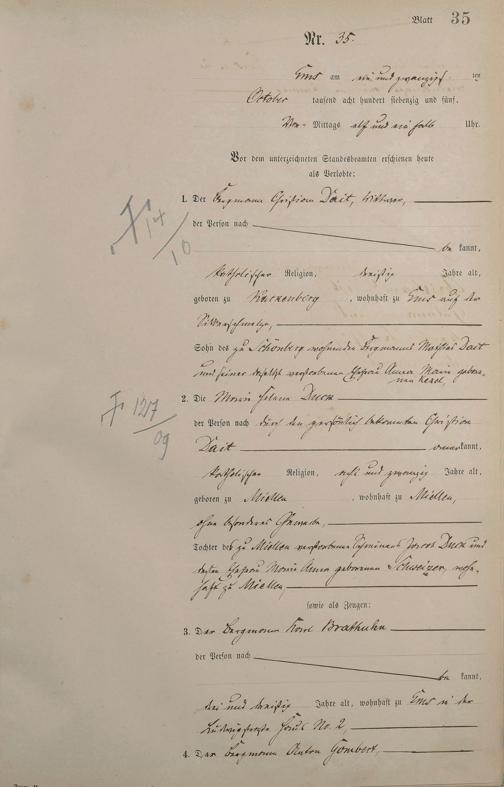 Blatt 35
Nr. 35.
Ems am ein und zwanzigsten
October tausend acht hundert siebenzig und fünf,
Vor-Mittags elf und ein halb Uhr.
Vor dem unterzeichneten Standesbeamten erschienen heute
als Verlobte:
1. Der Bergmann Christian Dait, Wittwer,
der Person nach
be kannt,
katholischer Religion, dreißig Jahre alt,
geboren zu , wohnhaft zu Ems auf der
Silberschmelze,
Sohn des zu Schönberg wohnenden Bergmanns Mathias Dait
und seiner daselbst verstorbenen Ehefrau Anna Maria gebore-
nen
2. Die Maria Helena Duck
der Person nach durch den persönlich bekannten Christian
Dait anerkannt,
katholischer Religion, acht und zwanzig Jahre alt,
geboren zu Miellen , wohnhaft zu Miellen,
ohne besonderes Gewerbe,
Tochter des zu Miellen verstorbenen Schreiners Jacob Duck und
dessen Ehefrau Maria Anna geborenen Schweizer, wohn-
haft zu Miellen,
sowie als Zeugen:
3. Der Bergmann Karl Brathuhn
der Person nach
be kannt,
drei und dreißig Jahre alt, wohnhaft zu Ems in der
Ludwigstraße Haus No. 2,
4. Der Bergmann Anton Gombert,
14/10
127/09